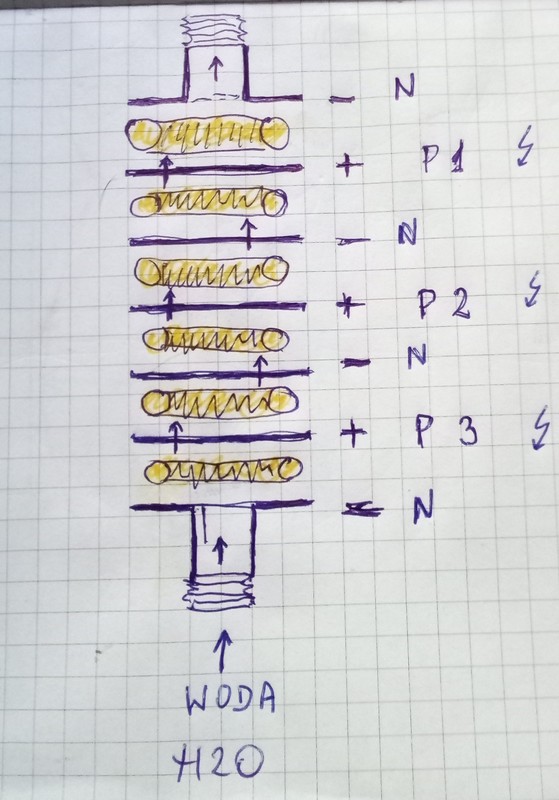 - N
+ P1
- N
+ P2
- N
+ P3
- N
WODA
H2O